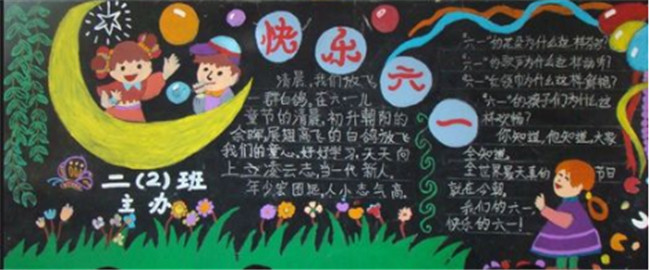 快乐六一
清晨,我们放飞
一群白鸽,在六一儿
童节的清晨,初升朝阳的
余晖尾随高飞的白鸽放飞
我们的童心,好好学习,天天向
上立凌云志,当一代新人,
年少家团 人小志气高,
二(2)班
主办
"六一"的花朵为什么这样
"六一"的歌声为什么这样
"六一"的 领巾为什么这样鲜艳?
"六一"的孩子们为什么这
样欢畅?
你知道,他知道,大家
全知道,
全世界最天真的节日
就在今朝,
我们的六一,
快乐的六一!